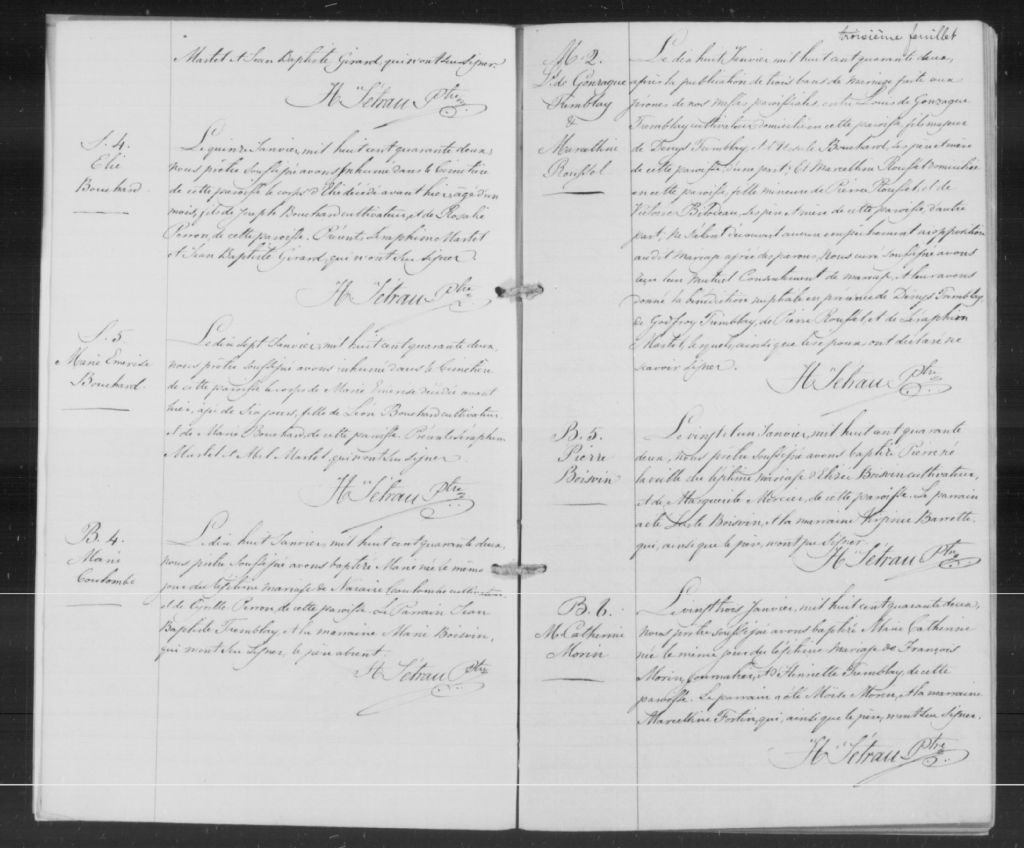 Martel et Jean Baptiste Girard, qui n'ont su signer.
H Tétrau Ptre
S. 4.
Elie
Bouchard
Le quinze Janvier, mil huit cent quarante deux,
nous prêtre soussigné avons inhumé dans le Cimetière
de cette paroisse le corps d'Elie décédé avant hier, âgé d'un
mois, fils de Joseph Bouchard cultivateur, et de Rosalie
Perron, de cette paroisse. Présents Séraphin Martel
et Jean Baptiste Girard, qui n'ont su signer.
H Tétrau Ptre
S. 5.
Marie Emerise
Bouchard
Le dix sept Janvier, mil huit cent quarante deux,
nous prêtre soussigné avons inhumé dans le Cimetière
de cette paroisse le corps de Marie Emerise décédée avant
hier, agée de six jours, fille de Léon Bouchard cultivateur
et de Marie Bouchard, de cette paroisse. Présents Séraphin
Martel et Abel Martel, qui n'ont su signer.
H Tétrau Ptre
B. 4.
Marie
Coulombe
Le dix huit Janvier, mil huit cent quarante deux,
nous prêtre soussigné avons baptisé Marie née le même
jour du légitime mariage de Nazaire Coulombe cultivateur
et de Cyrille Perron, de cette paroisse. Le Parrain Jean
Baptiste Tremblay et la marraine Marie Boivin,
qui n'ont su signer, le père absent.
H Tétrau Ptre
troisième feuillet
M. 2.
Ls. de Gonzague
Tremblay
&
Marcelline
Roussel
Le dix huit Janvier mil huit cent quarante deux,
après la publication de trois bans de mariage faite aux
prônes de nos messes paroissiales, entre Louis de Gonzague
Tremblay cultivateur domicilié en cette paroisse, fils majeur
de Denys Tremblay, et d'Ursule Bouchard, ses père et mère
de cette paroisse d'une part; Et Marcelline Roussel domiciliée
en cette paroisse, fille mineure de Pierre Roussel et de
Victoire Bilodeau, ses père et mère de cette paroisse, d'autre
part; ne s'étant découvert aucun empêchement ni opposition
au dit mariage après des parens, nous curé soussigné avons
reçu leur mutuel Consentement de mariage, et leur avons
donné la bénédiction nuptiale en présence de Denys Tremblay,
de Godfroy Tremblay, de Pierre Roussel, et de Séraphin
Martel, lesquels, ainsi que les époux, ont déclaré ne
savoir signer.
H Tétrau Ptre
B. 5.
Pierre
Boivin
Le vingt et un Janvier, mil huit cent quarante
deux, nous prêtre soussigné avons baptisé Pierre né
la veille du légitime mariage d'Elisée Boivin cultivateur,
et de Marguerite Mercier, de cette paroisse. Le parrain
a été Boivin, et la marraine Barrette,
qui, ainsi que le père, n'ont pu signer.
H Tétrau Ptre
B. 6.
M. Catherine
Morin
Le vingt trois Janvier, mil huit cent quarante deux,
nous prêtre soussigné avons baptisé Marie Catherine
née le même jour du légitime mariage de François
Morin, journalier, et d'Henriette Tremblay, de cette
paroisse. Le parrain a été Moïse Morin, et la marraine
Marcelline Fortin, qui, ainsi que le père, n'ont su signer.
H Tétrau Ptre